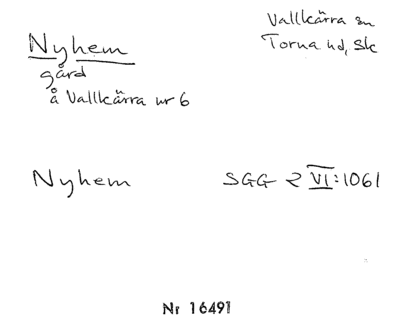 Nyhem
gård
å Vallkärra nr 6
Vallkärra sn
Torna hd, Sk
Nyhem
SGG 2 VI:1061
Nr 16491